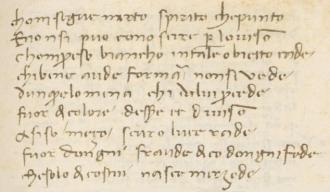 hom segue merto spirito che punto
Enon si puo conoscere p lo uiso
chompreso biancho in tale obietto cade
chi bene aude forma non si uede
dunq elo mena chi dilui procede
fuor di colore dessere diuiso
Asiso mezo scuro luce rade
fuor dongni fraude dico dongni fede
che solo di costui nasce merzede